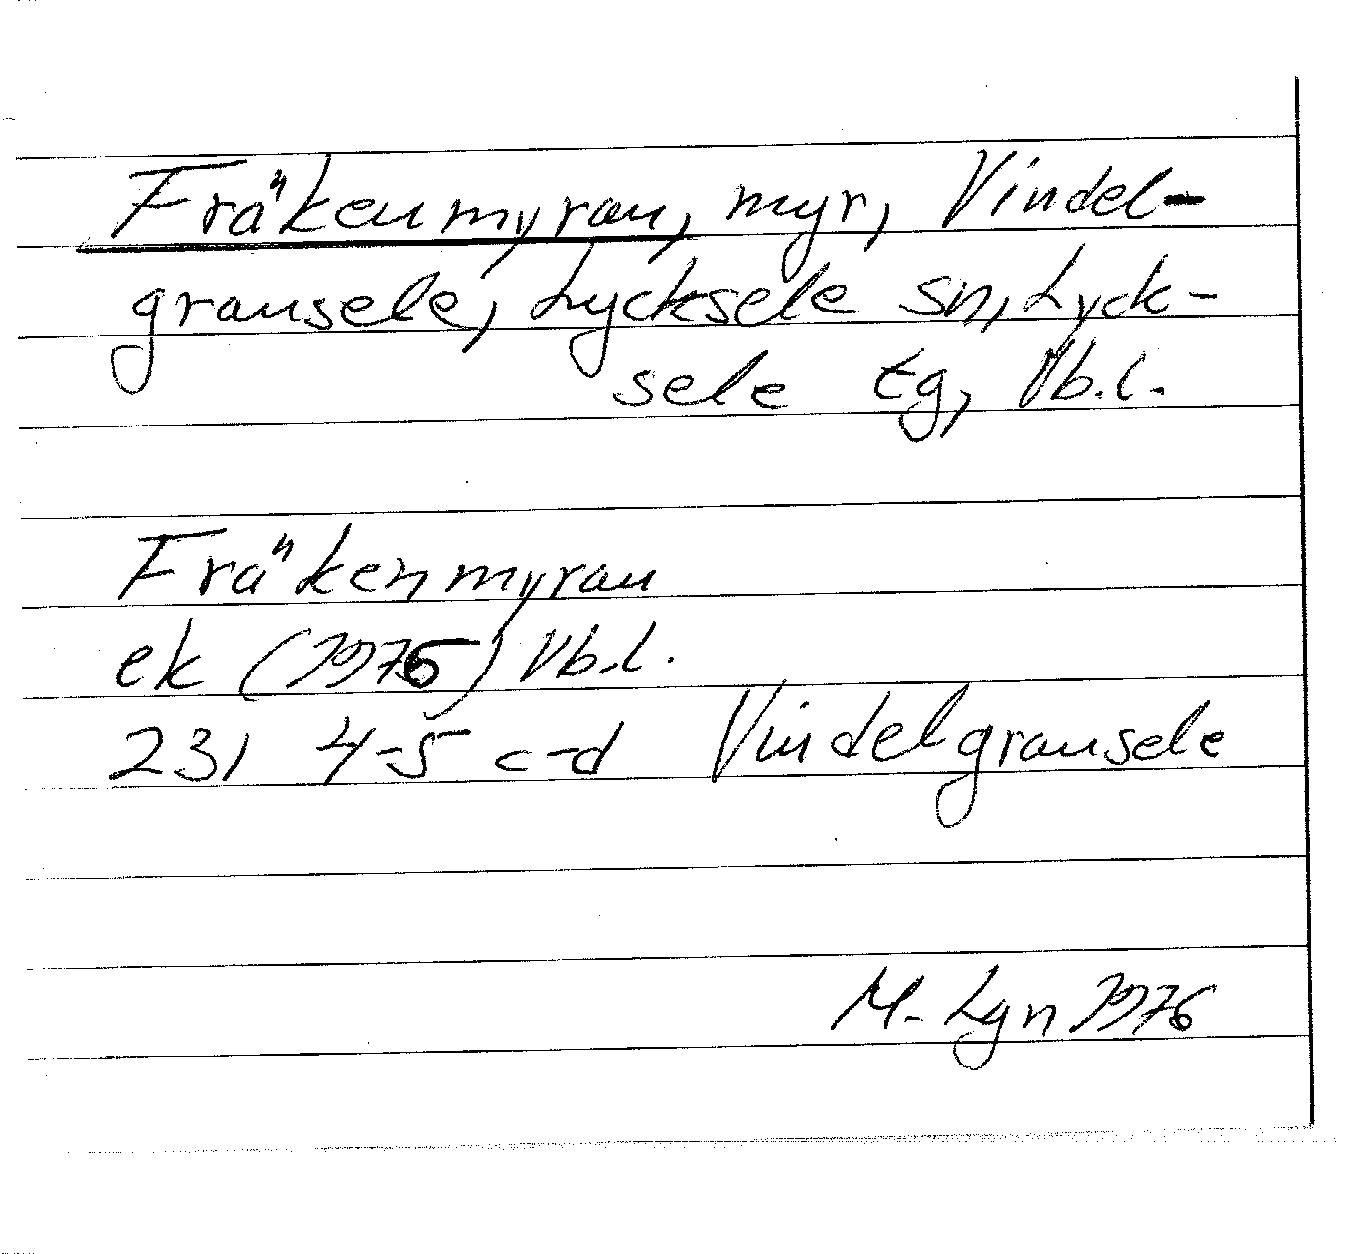 Fräkenmyran, myr, Vindel-
gransele, Lycksele sn, Lyck-
sele tg, Vb.l.
Fräkenmyran
ek (1976) Vb.l.
231 4-5 c-d Vindelgransele
M. Lgn 1976